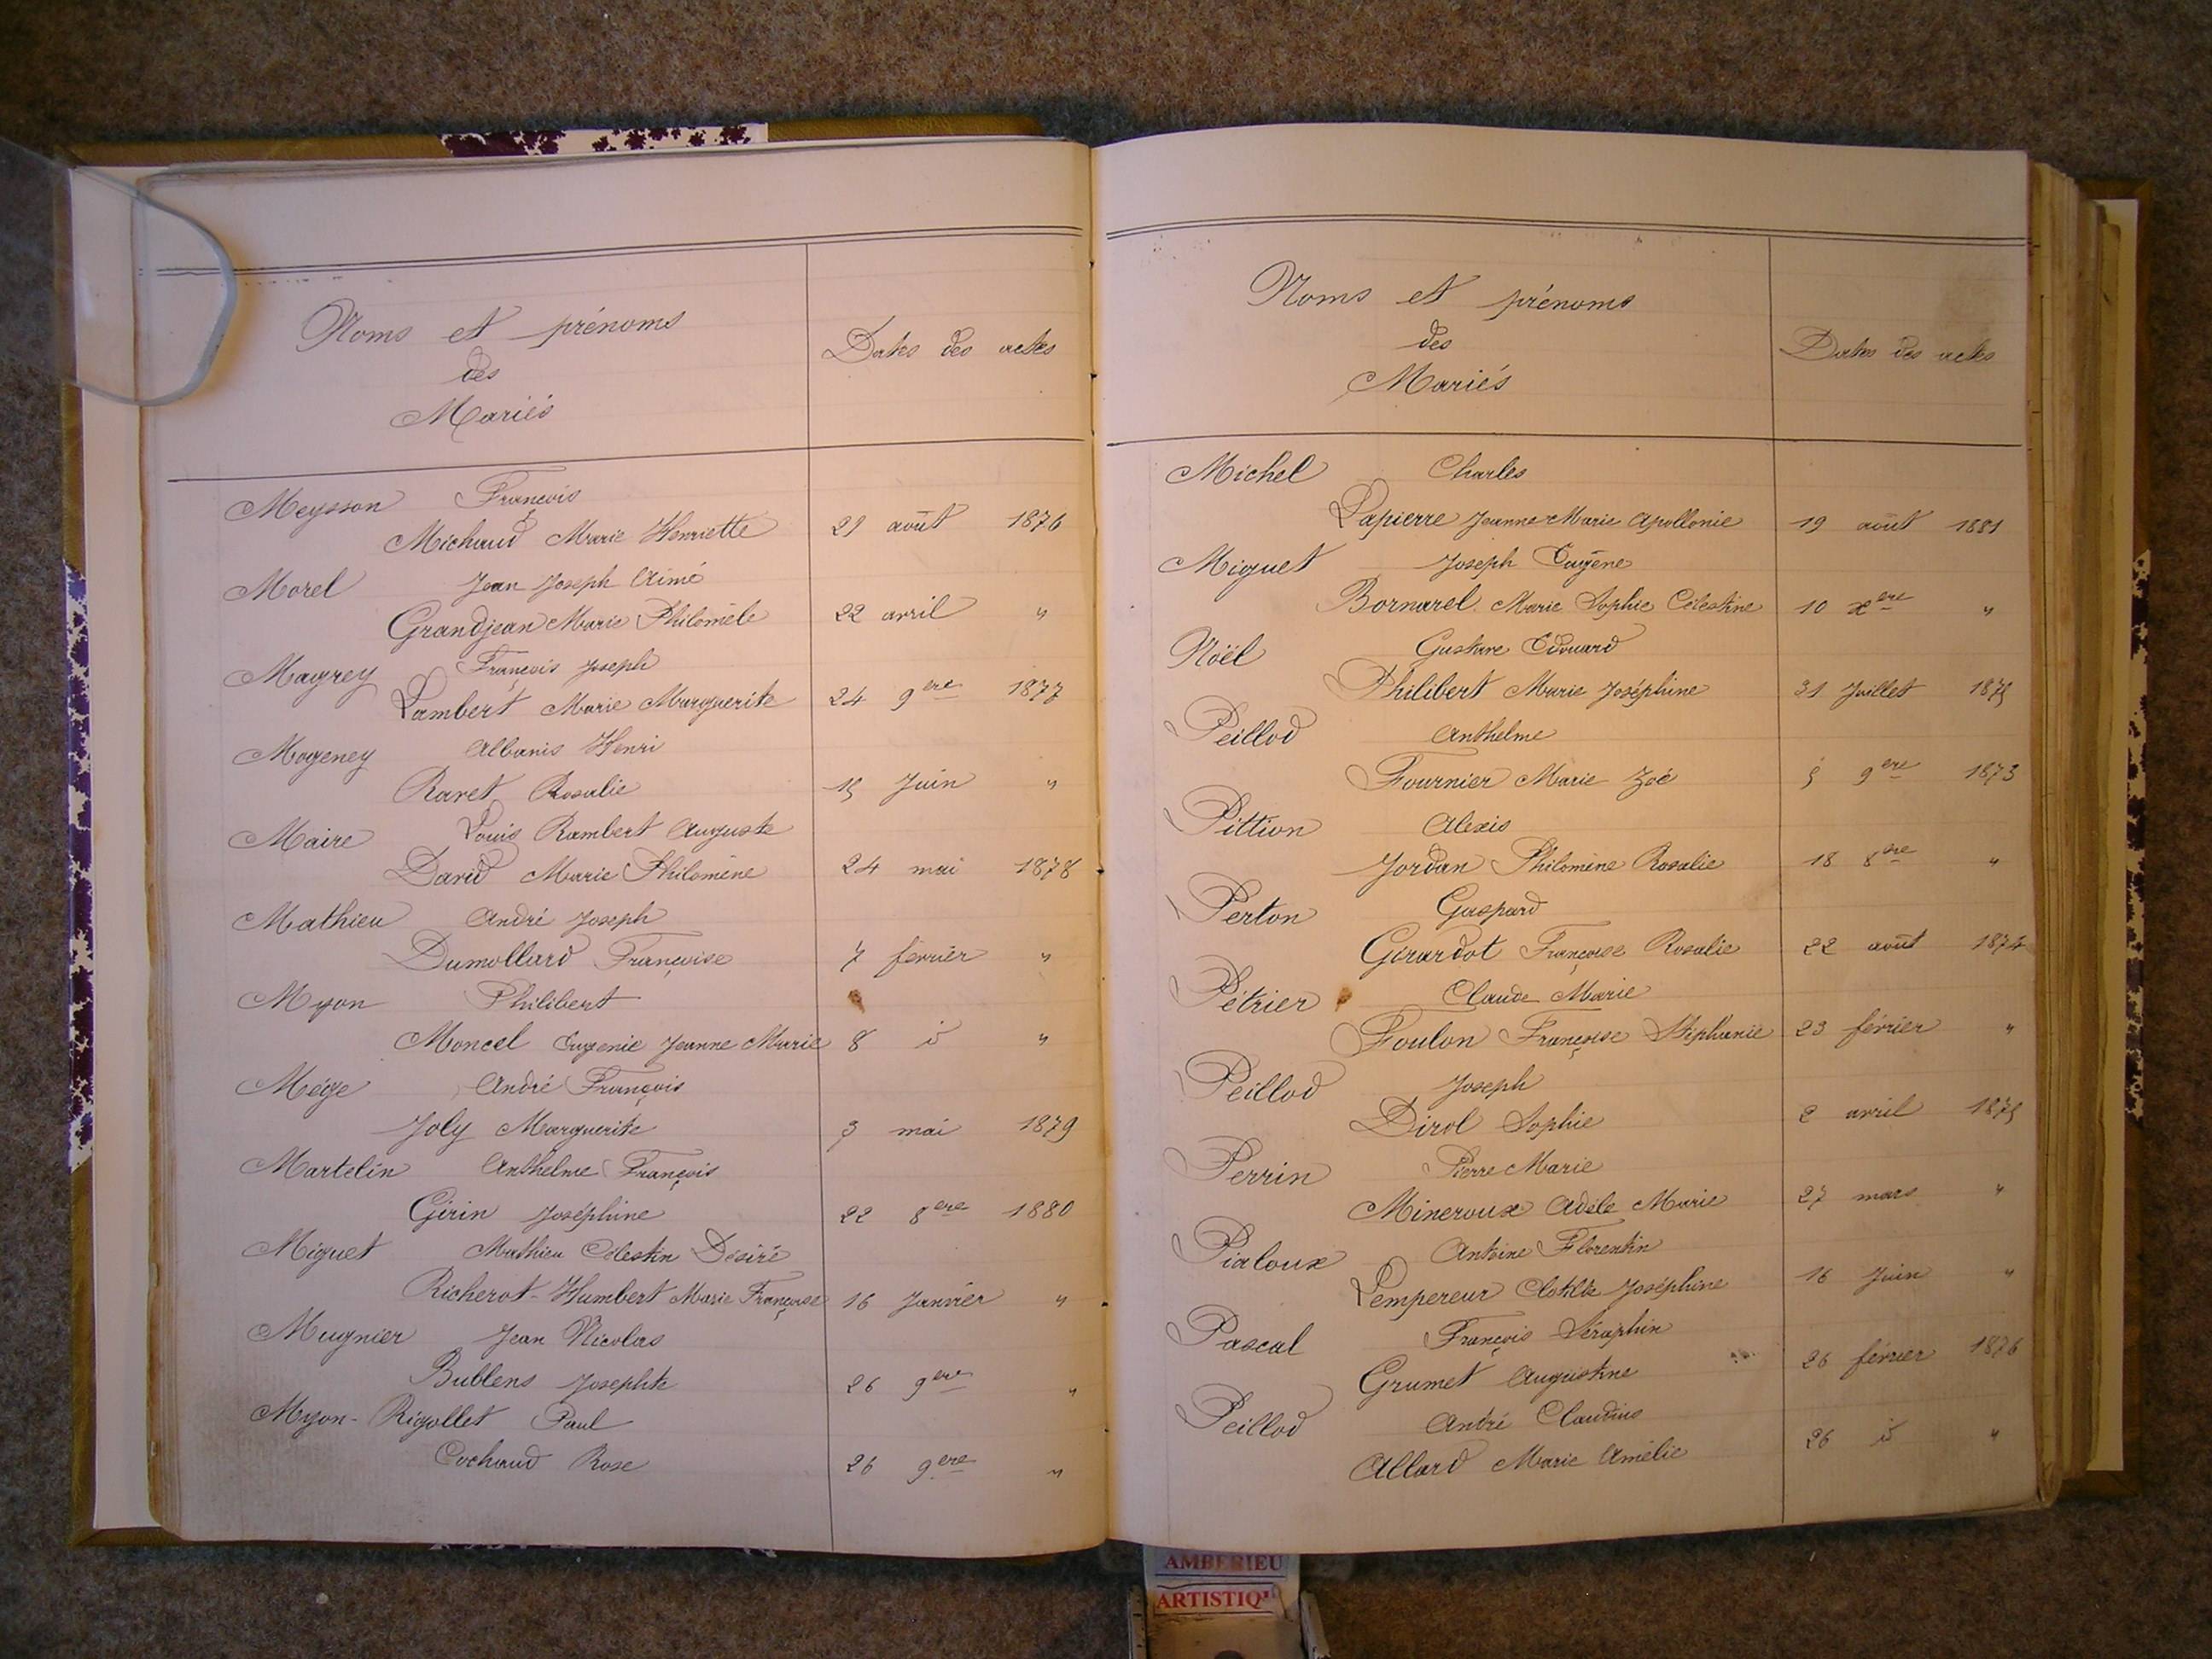 Noms et prénoms
des
Mariés
Dates des actes
Meysson François
Michaud Marie Henriette 29 août 1876
Morel Jean Joseph Aimé
Grandjean Marie Philomèle 22 avril "
Magrey François Joseph
Lambert Marie Marguerite 24 9ere 1877
Mogeney Albanis Henri
Ravet Rosalie 15 Juin "
Maire Louis Rambert Auguste
David Marie Philomène 24 mai 1878
Mathieu André Joseph
Dumollard Françoise 7 février "
Myon Philibert
Moncel Eugenie Jeanne Marie 8 id "
Mége André François
Joly Marguerite 3 mai 1879
Martelin Anthelme François
Girin Joséphine 22 8ere 1880
Miguet Mathieu Célestin Désiré
Richerot-Humbert Marie Françoise 16 Janvier "
Mugnier Jean Nicolas
Bublens Josephte 26 9ere "
Myon-Rigollet Paul
Cochaud Rose 26 9ere "
Noms et prénoms
des
Mariés
Dates des actes
Michel Charles
Lapierre Jeanne Marie Apollonie 19 août 1881
Miguet Joseph Eugène
Bornarel Marie Sophie Célestine 10 xere "
Noël Gustave Edouard
Philibert Marie Joséphine 31 Juillet 1875
Peillod Anthelme
Fournier Marie Zoé 5 9ere 1873
Pittion Alexis
Jordan Philomène Rosalie 18 8ere "
Perton Gaspard
Girardot Françoise Rosalie 22 août 1874
Pétrier Claude Marie
Foulon Françoise Stéphanie 23 février "
Peillod Joseph
Dirol Sophie 2 avril 1875
Perrin Pierre Marie
Mineroux Adèle Marie 27 mars "
Pialoux Antoine Florentin
Lempereur Clotilde Joséphine 16 Juin "
Pascal François Séraphin
Grumet Augustine 26 février 1876
Peillod André Claudius
Allard Marie Amélie 26 id "
AMBERIEU
ARTISTIQU